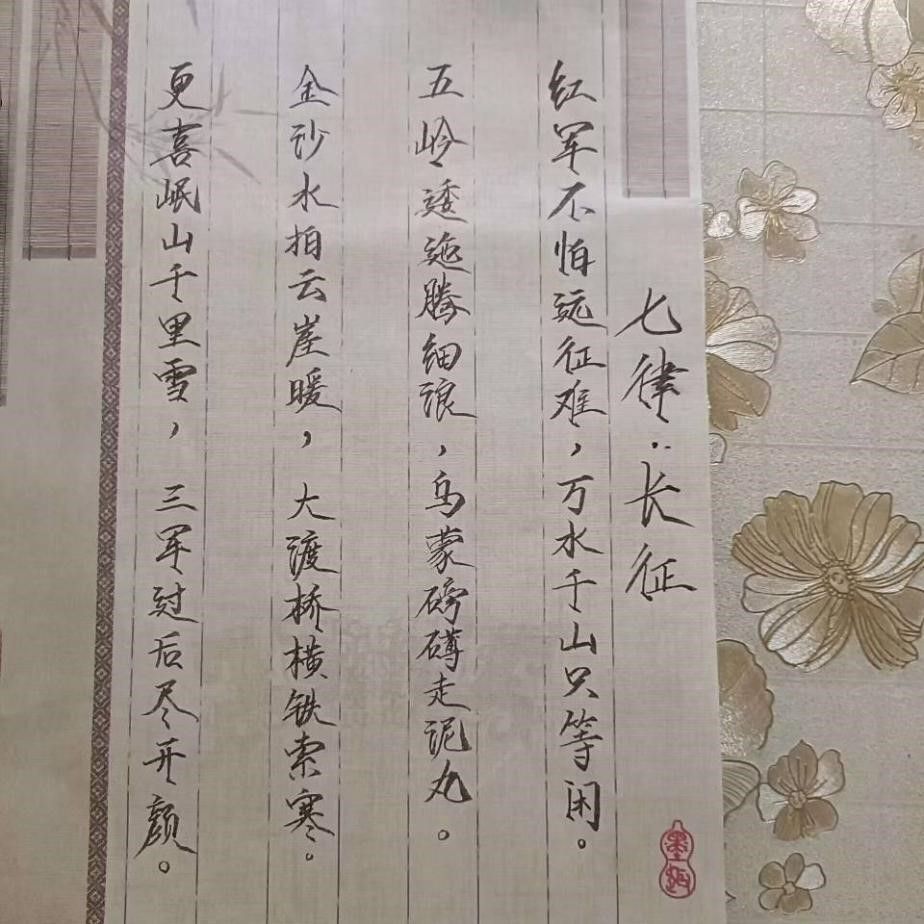 七律·长征
红军不怕远征难，万水千山只等闲。
五岭逶迤腾细浪，乌蒙磅礴走泥丸。
金沙水拍云崖暖，大渡桥横铁索寒。
更喜岷山千里雪，三军过后尽开颜。